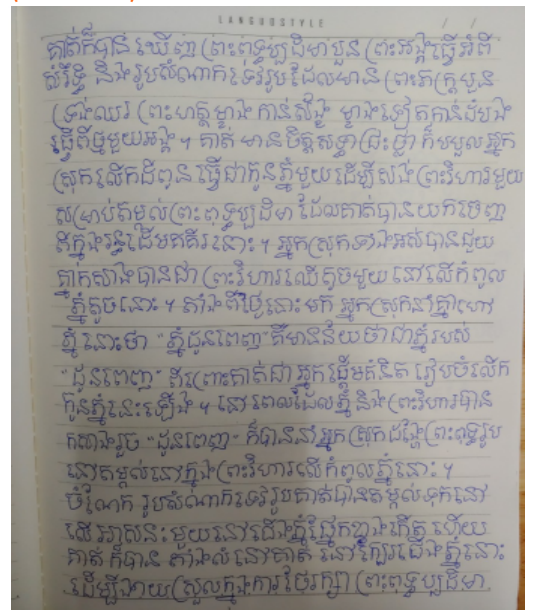 LANGUOSTYLE / /
គាត់ក៏បាន ឃើញ ព្រះពុទ្ធប្បដិមាបួន ព្រះអង្គធ្វើអំពី
សំរឹទ្ធិ និងរូបសំណាកទេវរូបដែលមាន ព្រះភក្ត្របួន
ទ្រង់ឈរ ព្រះហត្ថម្ខាង កាន់ស័ង្ខ ម្ខាងទៀតកាន់ដំបង
ធ្វើពីថ្មមួយអង្គ ។ គាត់ មានចិត្តសទ្ធាជ្រះថ្លា ក៏បបួលអ្នក
ស្រុកលើកដីពូន ធ្វើជាកូនភ្នំមួយដើម្បីសង់ព្រះវិហារមួយ
សម្រាប់តម្កល់ព្រះពុទ្ធប្បដិមា ដែលគាត់បានយកចេញ
ពីក្នុងរន្ធដើមគគីរនោះ ។ អ្នកស្រុកទាំងអស់បានជួយ
គ្នាកសាងបានជាព្រះវិហារឈើតូចមួយ នៅលើកំពូល
ភ្នំតូចនោះ ។ តាំងពីថ្ងៃនោះមក អ្នកស្រុកនាំគ្នាហៅ
ភ្នំនោះថា "ភ្នំដូនពេញ" គឺមានន័យថាជាភ្នំរបស់
"ដូនពេញ" ពីព្រោះគាត់ជា អ្នកផ្តើមគំនិត រៀបចំលើក
កូនភ្នំនេះឡើង ។ នៅពេលដែលភ្នំ និងព្រះវិហារបាន
កសាងរួច "ដូនពេញ" ក៏បាននាំអ្នកស្រុកដង្ហែព្រះពុទ្ធរូប
ទៅតម្កល់នៅក្នុងព្រះវិហារលើកំពូលភ្នំនោះ ។
ចំណែក រូបសំណាកទេវរូបគាត់បានតម្កល់ទុកនៅ
លើ អាសនៈមួយនៅជើងភ្នំផ្នែកខាងកើត ហើយ
គាត់ ក៏បាន តាំងលំនៅឋាន នៅក្បែរជើងភ្នំនោះ
ដើម្បីងាយស្រួលក្នុងការថែរក្សា ព្រះពុទ្ធប្បដិមា